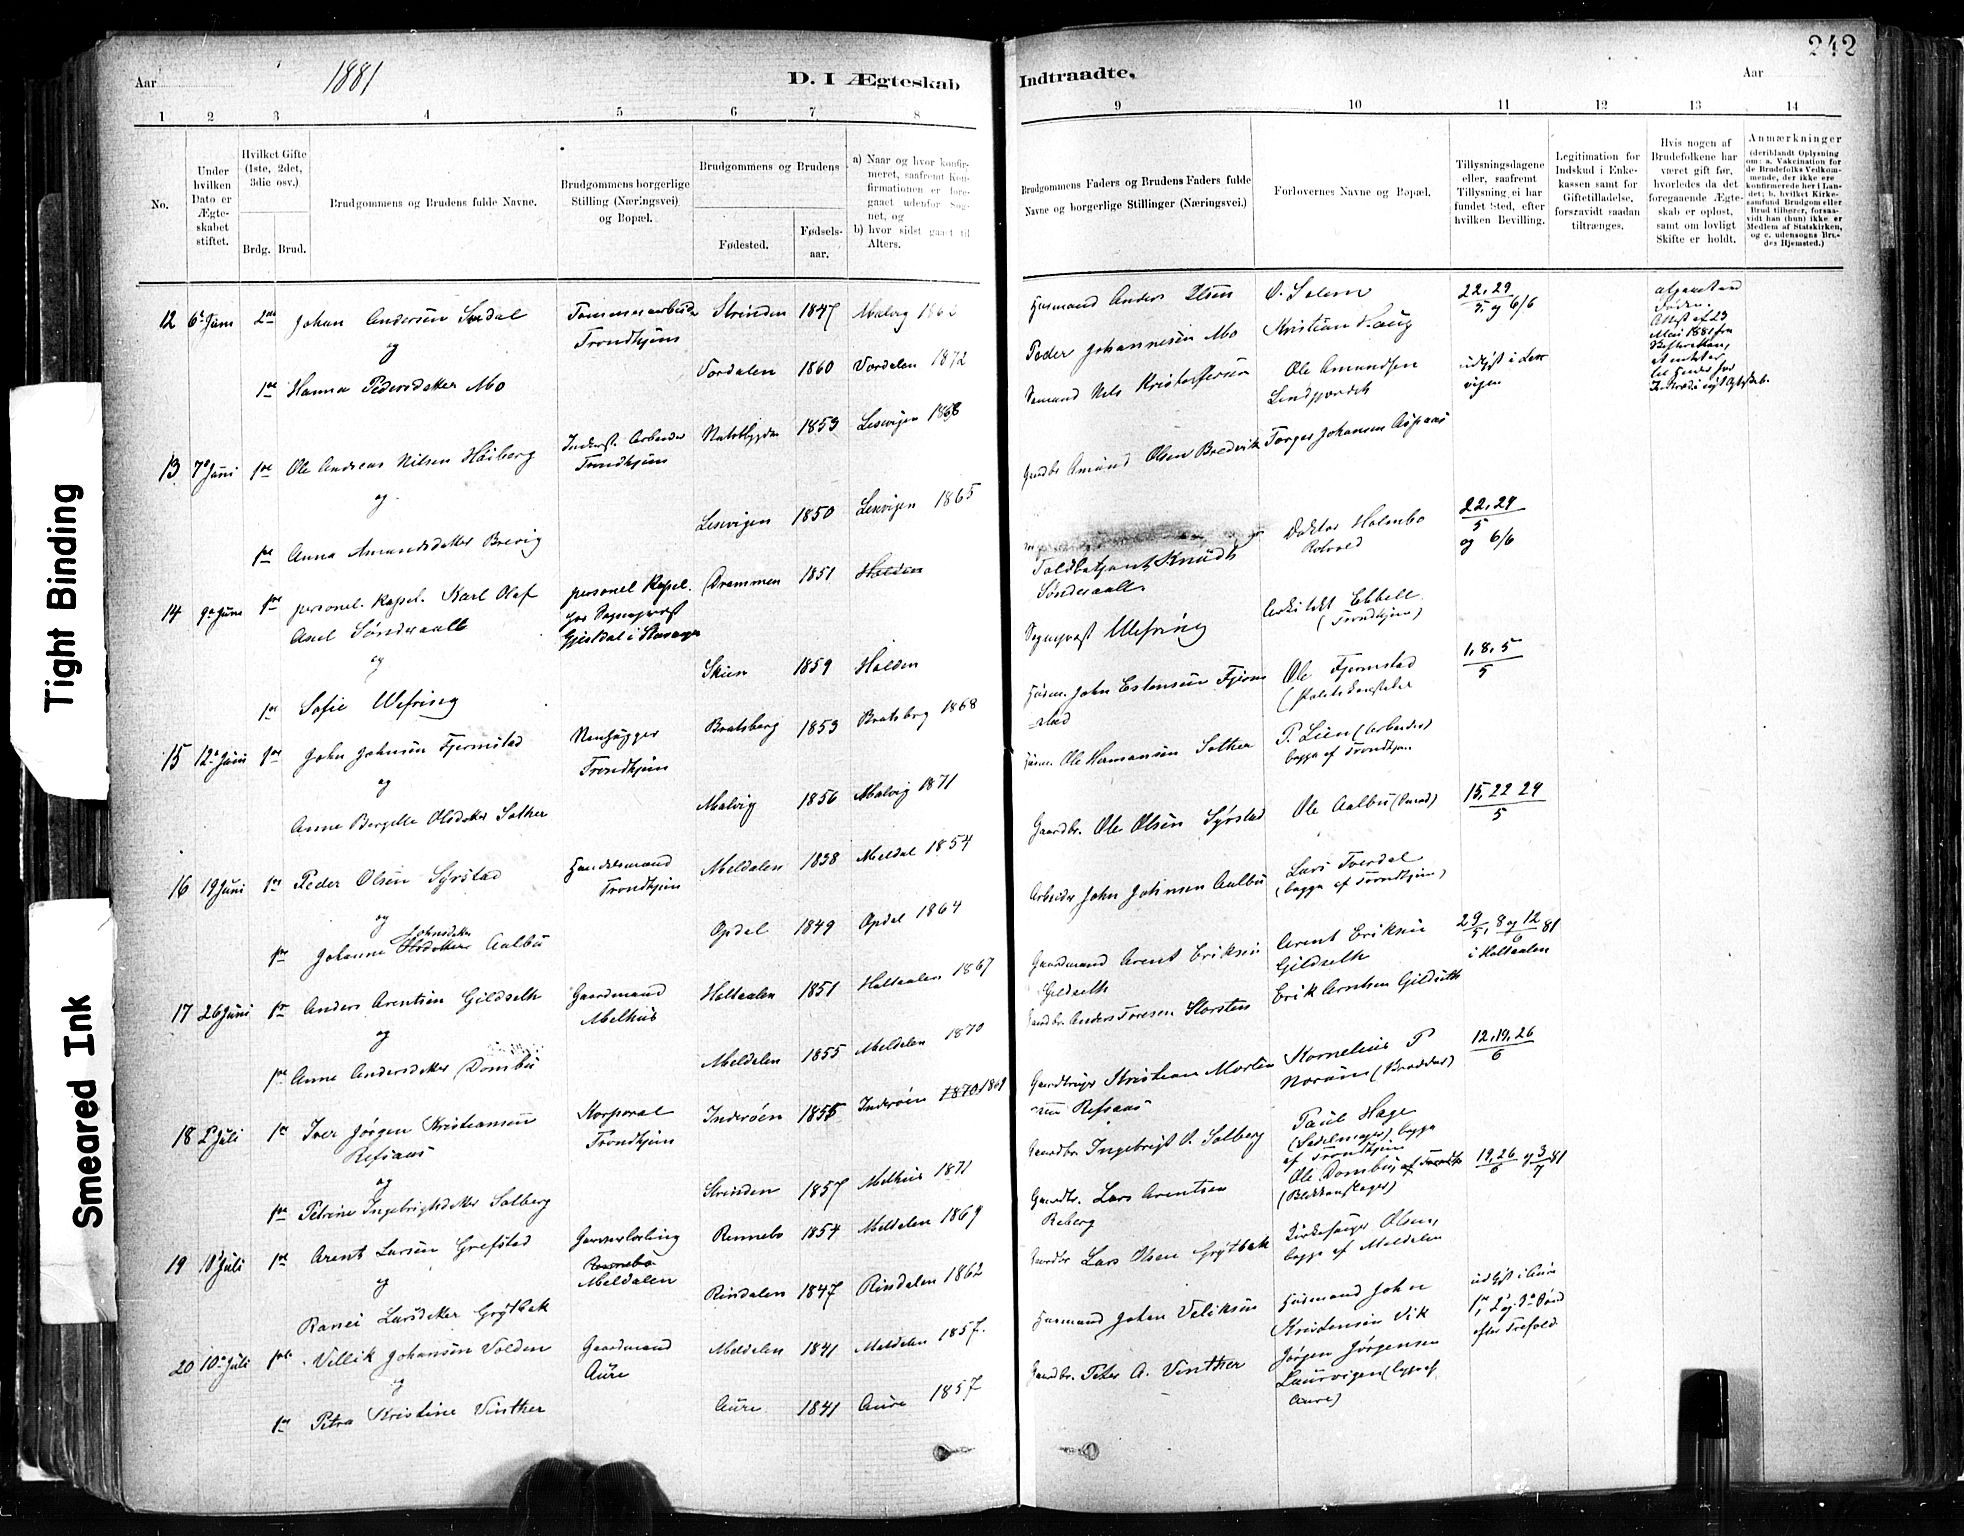 242
Aar 1881 D. I Ægteskab Indtraadte. Aar
1 2 3 4 5 6 7 8 9 10 11 12 13 14
No.
Under hvilken Dato er Ægteskabet stiftet.
Hvilket Gifte (1ste, 2det, 3die osv.)
Brdg. Brud.
Brudgommens og Brudens fulde Navne.
Brudgommens borgerlige Stilling (Næringsvei) og Bopæl.
Brudgommens og Brudens
Fødested.
Fødselsaar.
a) Naar og hvor konfirmeret, saafremt Konfirmationen er foregaaet udenfor Sognet, og
b) hvor sidst gaaet til Alters.
Brudgommens Faders og Brudens Faders fulde Navne og borgerlige Stillinger (Næringsvei.)
Forlovernes Navne og Bopæl.
Tillysningsdagene eller, saafremt Tillysning ei har fundet Sted, efter hvilken Bevilling.
Legitimation for Indskud i Enkekassen samt for Giftetilladelse, forsaavidt saadan tiltrænges.
Hvis nogen af Brudefolkene har været gift før, hvorledes da det foregaaende Ægteskab er opløst, samt om lovligt Skifte er holdt.
Anmærkninger
(deriblandt Oplysning om: a. Vakcination for de Brudefolks Vedkommende, der ikke ere konfirmerede her i Landet; b. hvilket Kirkesamfund Brudgom eller Brud tilhører, forsaavidt han (hun) ikke er Medlem af Statskirken, og c. udensogns Brudes Hjemsted.)
12 6 Juni 2den Johan Andersen
Trondhjem
Strinden 1847 Malvig
Husmand Anders Olsen
22, 29
5 og 6/6
og
1ste Hanna Pedersdatter Mo
1860 1872
Peder Johannesen Mo
Kristian Haug
Attest af 23
Mai 1881 fra
13 7 Juni 1ste Ole Andreas Nilsen Høiberg
Inderst. Arbeider
Trondhjem
1853 Lesvigen 1868
Nels Kristoffersen
Ole Amundsen
og
1ste Anna Amundsdatter Brevig
Lesvigen 1850 Lesvigen 1865
Amund Olsen Bredvik
Torger Johansen Aspaas
14 9 Juni 1ste personel. Kapel. Karl Olaf
Axel Sønderaall
personel Kapel.
hos Sognepræst
Gjesdal i Stavanger
Drammen 1851 Halden
Toldbetjent Knud
Sønderaall
Doktor Holmbo
22, 29
5
og 6/6
og
1ste Sofie Wefring
Skien 1859 Halden
Sognepræst Wefring
Arkitekt Ebbell
(Trondhjem)
15 12 Juni 1ste John Johnsen Fjermstad
Trondhjem
Bratsberg 1853 Bratsberg 1868
Husm. John Estensen Fjermstad
Ole Fjermstad
(Politikonstabel
1, 8, 5
5
og
Anne Bergette Olsdatter Sather
Malvig 1856 Malvig 1871
Husm. Ole Hermansen Sather
P. Lien (Arbeider)
begge af Trondhjem
16 19 Juni 1ste Peder Olsen Syrstad
Handelsmand
Trondhjem
Meldalen 1838 Meldal 1854
Gaardbr. Ole Olsen Syrstad
Ole Aalbu
15, 22 29
5
og
1ste Johanne Olsdatter Johnsdatter Aalbu
Opdal 1849 Opdal 1864
Arbeider John Johnsen Aalbu
Lars Tverdal
(begge af Trondhjem)
17 26 Juni 1ste Anders Arentsen Gildseth
Gaardmand
Melhus
Holtaalen 1851 Holtaalen 1867
Gaardmand Arent Eriksen
Gildseth
Arent Eriksen
Gildseth
29/5, 8 og 12/6 81
i Holtaalen
og
1ste Anne Andersdatter Dombu
Meldalen 1855 Meldalen 1870
Gaardbr. Anders Toresen Storsten
Erik Arntsen Gildseth
18 2 Juli 1ste Iver Jørgen Kristiansen
Refsaas
Korporal
Trondhjem
Inderøen 1855 Inderøen 1870
Gaardbruger Kristian Mortensen Refsaas
Kornelius P
12, 19, 26
6
og
1ste Petrine Ingebrigtsdatter Solberg
Strinden 1857 Melhus 1871
Gaardbr. Ingebrigt O. Solberg
Paul Hage
(Sadelmager) begge
af Trondhjem
19 10 Juli 1ste Arent Larsen Grefstad
Rennebo
Meldalen
Rennebo 1854 Meldalen 1869
Gaardbr. Lars Arentsen
Reberg
Ole Dombu,
(Blikkenslager)
19, 26/6 og 3/7 81
og
Ranei Larsdatter Grøtbak
Rindalen 1847 Rindalen 1862
Gaardbr Lars Olsen Grøtbak
Kirkesanger Olsen,
begge af Meldalen
20 10 Juli Villik Johansen Volden
Gaardmand
Aure
Meldalen 1841 Meldalen 1857.
Husmand Johan Veliksen
Husmand John
Kristensen Vik
udlyst i Aure
efter Trefold.
og
1ste Petra Kristine Vinther
Aure 1841 Aure 1857
Gaardbr. Peter A. Vinther
Jørgen Jørgensen
Laurvigen (begge af
Aure)
Tight Binding
Smeared Ink